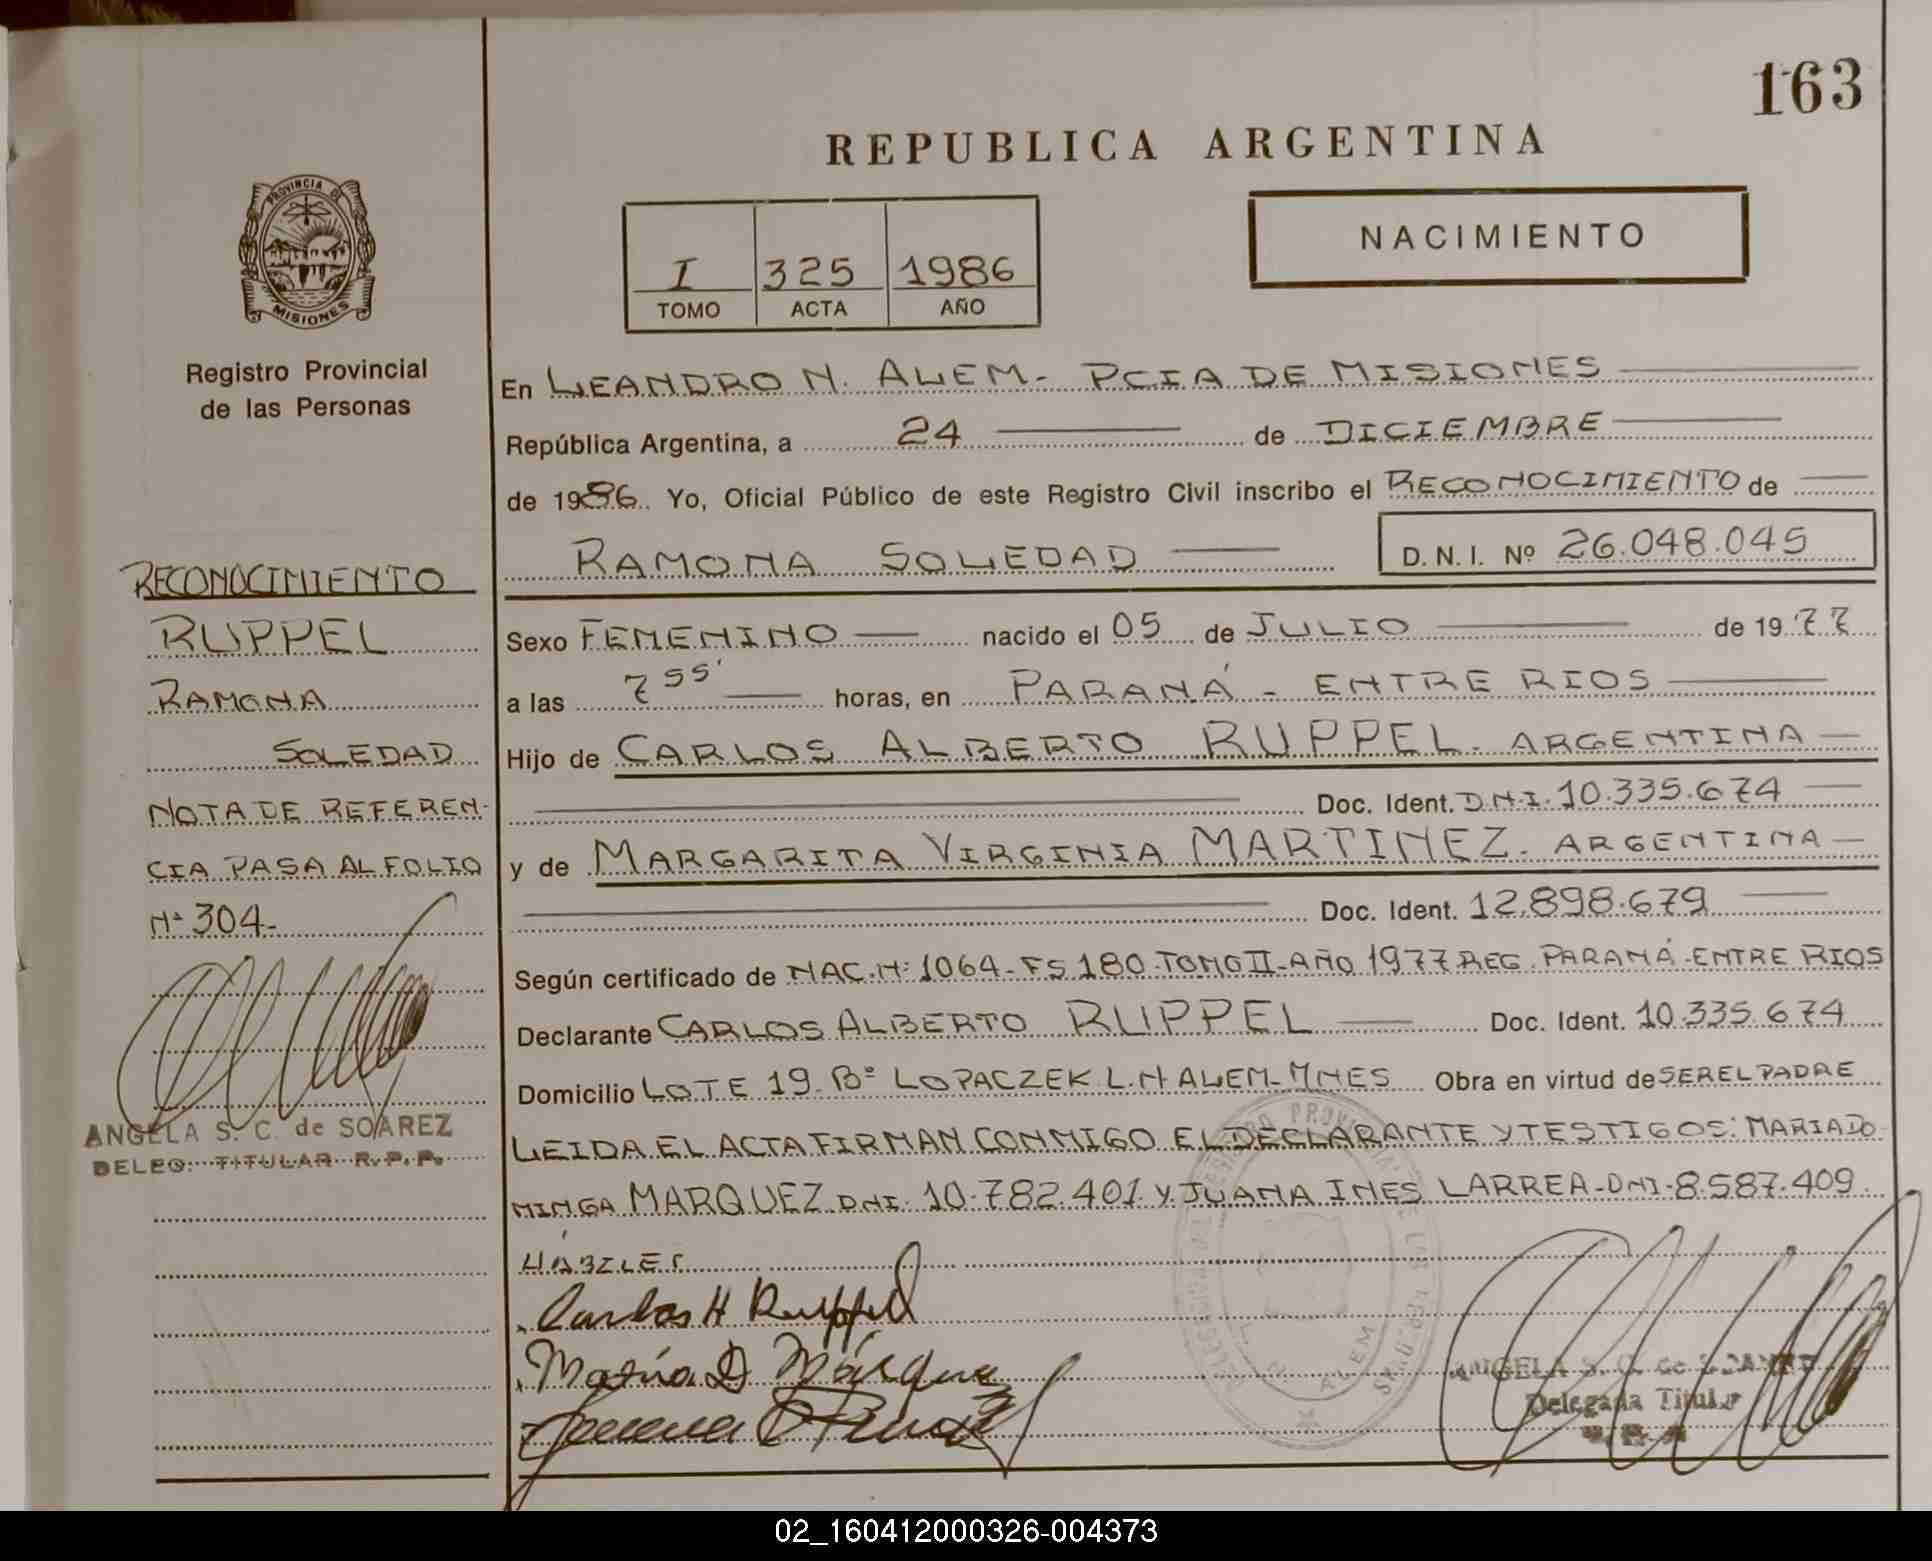 163
REPUBLICA ARGENTINA
PROVINCIA DE
MISIONES
Registro Provincial
de las Personas
I 325 1986
TOMO ACTA AÑO
NACIMIENTO
En LEANDRO N. ALEM- PCIA DE MISIONES
República Argentina, a 24 de DICIEMBRE
de 1986. Yo, Oficial Público de este Registro Civil inscribo el RECONOCIMIENTO de
RAMONA SOLEDAD D. N. I. Nº 26.048.045
Sexo FEMENINO nacido el 05 de JULIO de 1977
a las 7 55' horas, en PARANÁ - ENTRE RIOS
Hijo de CARLOS ALBERTO RUPPEL. ARGENTINA
Doc. Ident. D.N.I. 10.335.674
y de MARGARITA VIRGINIA MARTINEZ. ARGENTINA
Doc. Ident. 12.898.679
Según certificado de NAC. Nº 1064- FS 180-TOMO II-AÑO 1977 REG. PARANÁ-ENTRE RIOS
Declarante CARLOS ALBERTO RUPPEL Doc. Ident. 10.335.674
Domicilio LOTE 19-Bº LOPACZEK L.N ALEM-MNES Obra en virtud de SER EL PADRE
LEIDA EL ACTA FIRMAN CONMIGO EL DECLARANTE Y TESTIGOS: MARIA DO-
MINGA MARQUEZ DNI. 10.782.401 Y JUANA INES LARREA-DNI-8.587.409.
HÁBILES
Carlos A Ruppel
María D Márquez
RECONOCIMIENTO
RUPPEL
RAMONA
SOLEDAD
NOTA DE REFEREN-
CIA PASA AL FOLIO
Nº 304-
ANGELA S. C. de SOAREZ
DELEG. TITULAR R.P.P.
ANGELA S. C. de SOAREZ
Delegada Titular
R.P.P.
L. N. ALEM
02_160412000326-004373